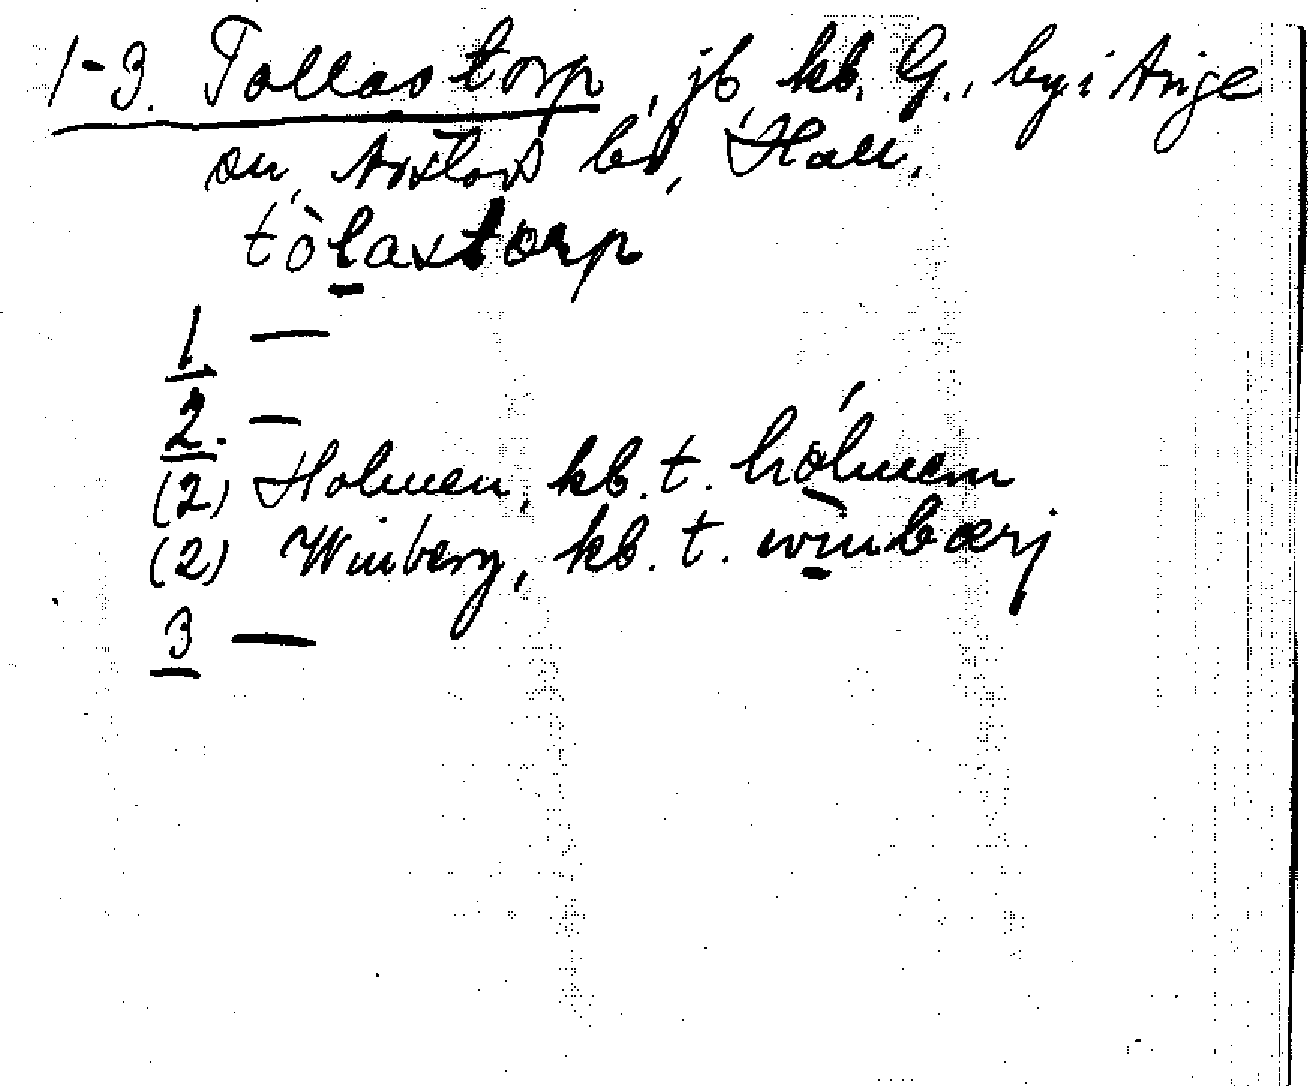 1-3. Tollastorp, jb, kb. G., by i Årige
sn, Årstads hd, Hall.
tòlastorp
1. —
2. —
(2) Holmen, kb. t. hólmem
(2) Winberg, kb. t. wìnbærj
3 —